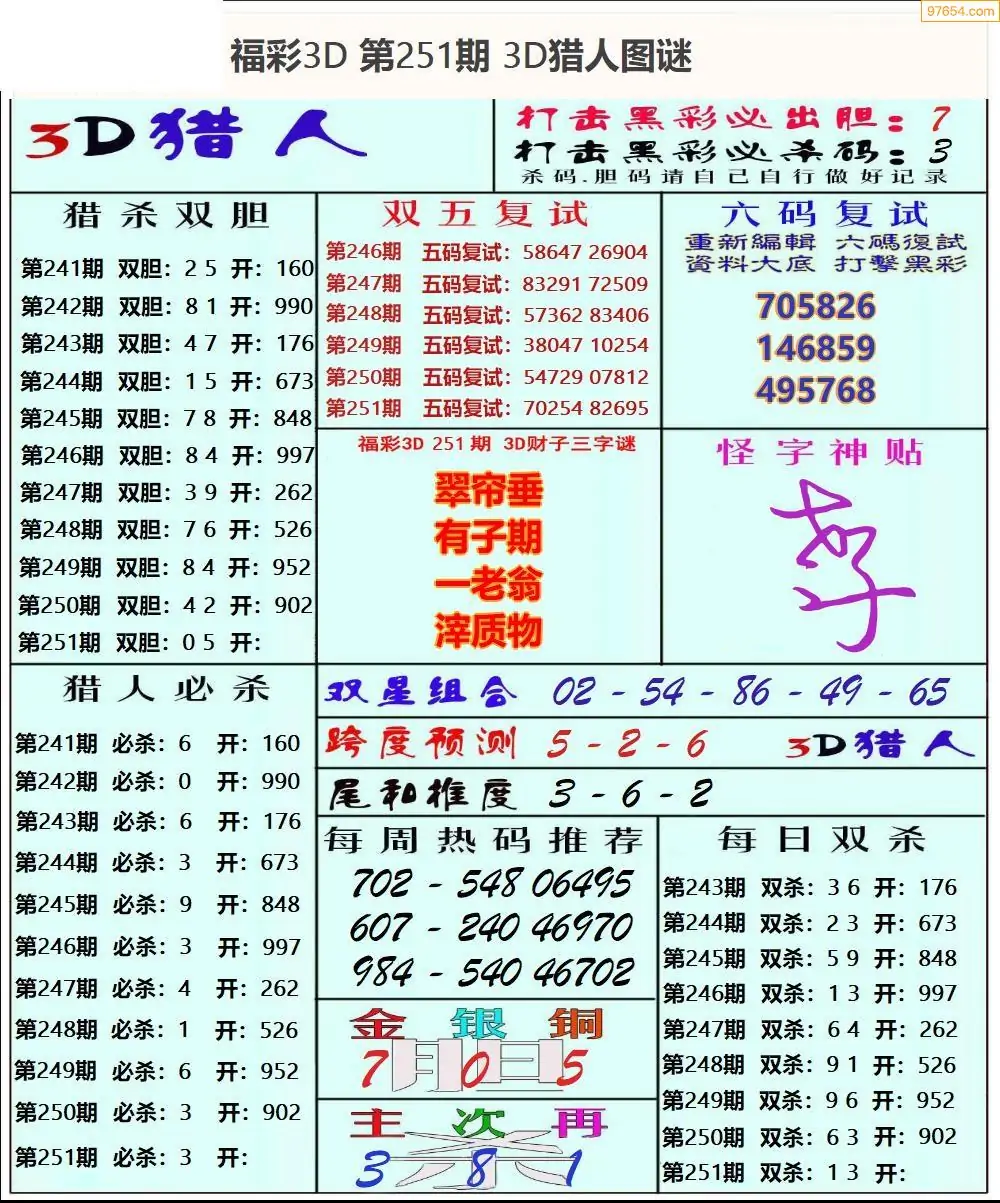 97654.com
福彩3D 第251期 3D猎人图谜
3D猎人
打击黑彩必出胆：7
打击黑彩必杀码：3
杀码.胆码请自己自行做好记录
猎杀双胆
第241期 双胆：2 5 开：160
第242期 双胆：8 1 开：990
第243期 双胆：4 7 开：176
第244期 双胆：1 5 开：673
第245期 双胆：7 8 开：848
第246期 双胆：8 4 开：997
第247期 双胆：3 9 开：262
第248期 双胆：7 6 开：526
第249期 双胆：8 4 开：952
第250期 双胆：4 2 开：902
第251期 双胆：0 5 开：
双五复试
第246期 五码复试：58647 26904
第247期 五码复试：83291 72509
第248期 五码复试：57362 83406
第249期 五码复试：38047 10254
第250期 五码复试：54729 07812
第251期 五码复试：70254 82695
六码复试
重新編輯 六碼復試
資料大底 打擊黑彩
705826
146859
495768
福彩3D 251期 3D财子三字谜
翠帘垂
有子期
一老翁
滓质物
怪字神贴
猎人必杀
第241期 必杀：6 开：160
第242期 必杀：0 开：990
第243期 必杀：6 开：176
第244期 必杀：3 开：673
第245期 必杀：9 开：848
第246期 必杀：3 开：997
第247期 必杀：4 开：262
第248期 必杀：1 开：526
第249期 必杀：6 开：952
第250期 必杀：3 开：902
第251期 必杀：3 开：
双星组合 02 - 54 - 86 - 49 - 65
跨度预测 5 - 2 - 6 3D猎人
尾和推度 3 - 6 - 2
每周热码推荐
702 - 548 06495
607 - 240 46970
984 - 540 46702
金 银 铜
胆
7 0 5
主 次 再
杀
3 8 1
每日双杀
第243期 双杀：3 6 开：176
第244期 双杀：2 3 开：673
第245期 双杀：5 9 开：848
第246期 双杀：1 3 开：997
第247期 双杀：6 4 开：262
第248期 双杀：9 1 开：526
第249期 双杀：9 6 开：952
第250期 双杀：6 3 开：902
第251期 双杀：1 3 开：